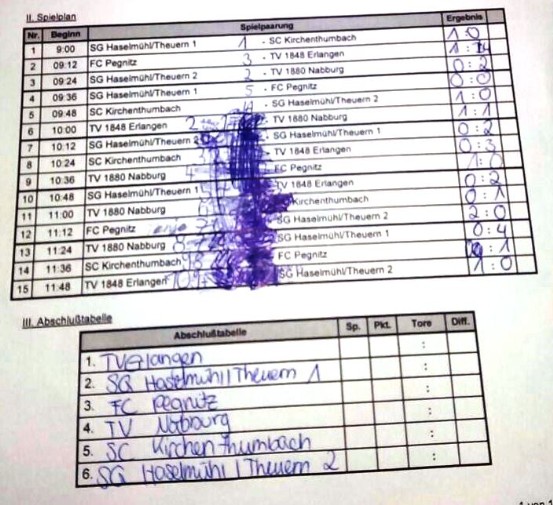 II. Spielplan
Nr. Beginn Spielpaarung Ergebnis
1 9:00 SG Haselmühl/Theuern 1 1 - SC Kirchenthumbach 1:0
2 09:12 FC Pegnitz 3 - TV 1848 Erlangen 1:
3 09:24 SG Haselmühl/Theuern 2 2 - TV 1880 Nabburg 0:2
4 09:36 SG Haselmühl/Theuern 1 5 - FC Pegnitz 0:0
5 09:48 SC Kirchenthumbach - SG Haselmühl/Theuern 2 1:0
6 10:00 TV 1848 Erlangen - TV 1880 Nabburg 1:1
7 10:12 SG Haselmühl/Theuern 2 - SG Haselmühl/Theuern 1 0:2
8 10:24 SC Kirchenthumbach - TV 1848 Erlangen 0:3
9 10:36 TV 1880 Nabburg FC Pegnitz 1:0
10 10:48 SG Haselmühl/Theuern 1 TV 1848 Erlangen 0:2
11 11:00 TV 1880 Nabburg Kirchenthumbach 0:1
12 11:12 FC Pegnitz SG Haselmühl/Theuern 2 2:0
13 11:24 TV 1880 Nabburg SG Haselmühl/Theuern 1 0:4
14 11:36 SC Kirchenthumbach FC Pegnitz :1
15 11:48 TV 1848 Erlangen SG Haselmühl/Theuern 2 1:0
III. Abschlußtabelle
Abschlußtabelle Sp. Pkt. Tore Diff.
1. TV Erlangen :
2. SG Haselmühl / Theuern 1 :
3. FC Pegnitz :
4. TV Nabburg :
5. SC Kirchenthumbach :
6. SG Haselmühl / Theuern 2 :